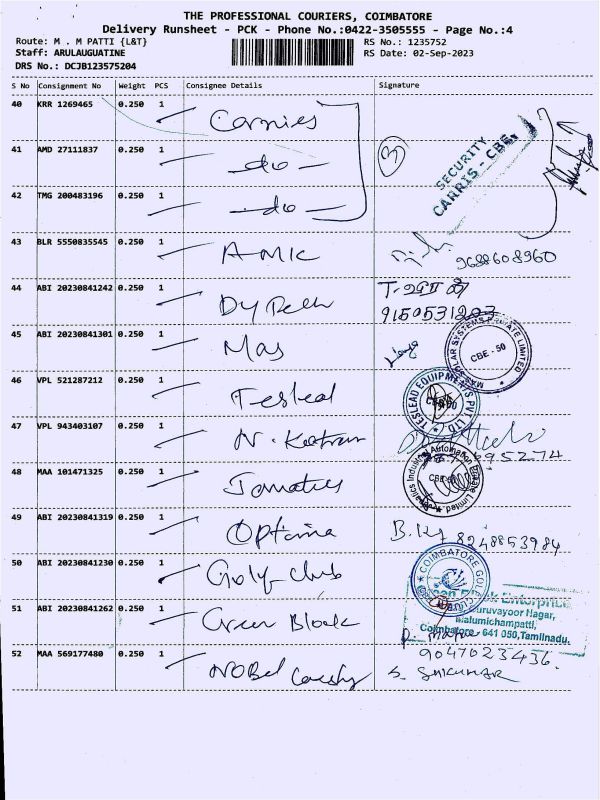 THE PROFESSIONAL COURIERS, COIMBATORE
Delivery Runsheet - PCK - Phone No.:0422-3505555 - Page No.:4
Route: M . M PATTI {L&T}
RS No.: 1235752
Staff: ARULAUGUATINE
RS Date: 02-Sep-2023
DRS No.: DCJB123575204
S No Consignment No Weight PCS Consignee Details Signature
40 KRR 1269465 0.250 1 Carries
41 AMD 27111837 0.250 1 -do-
SECURITY
CARRIS - CBE.
42 TMG 200483196 0.250 1 -do-
43 BLR 5550835545 0.250 1 AMIC 9688608960
44 ABI 20230841242 0.250 1
9150531203
45 ABI 20230841301 0.250 1 Mas
CBE - 50
46 VPL 521287212 0.250 1 Teslead
TESLEAD EQUIPMENTS PVT. LTD.
47 VPL 943403107 0.250 1
48 MAA 101471325 0.250 1
49 ABI 20230841319 0.250 1 Optima 8248853984
50 ABI 20230841230 0.250 1 Golf-club
COIMBATORE GOLF CLUB
51 ABI 20230841262 0.250 1 Green Block
Enterprise
Nagar,
Malumichampatti,
Coimbatore - 641 050,Tamilnadu.
52 MAA 569177480 0.250 1 NOBel
9047023436